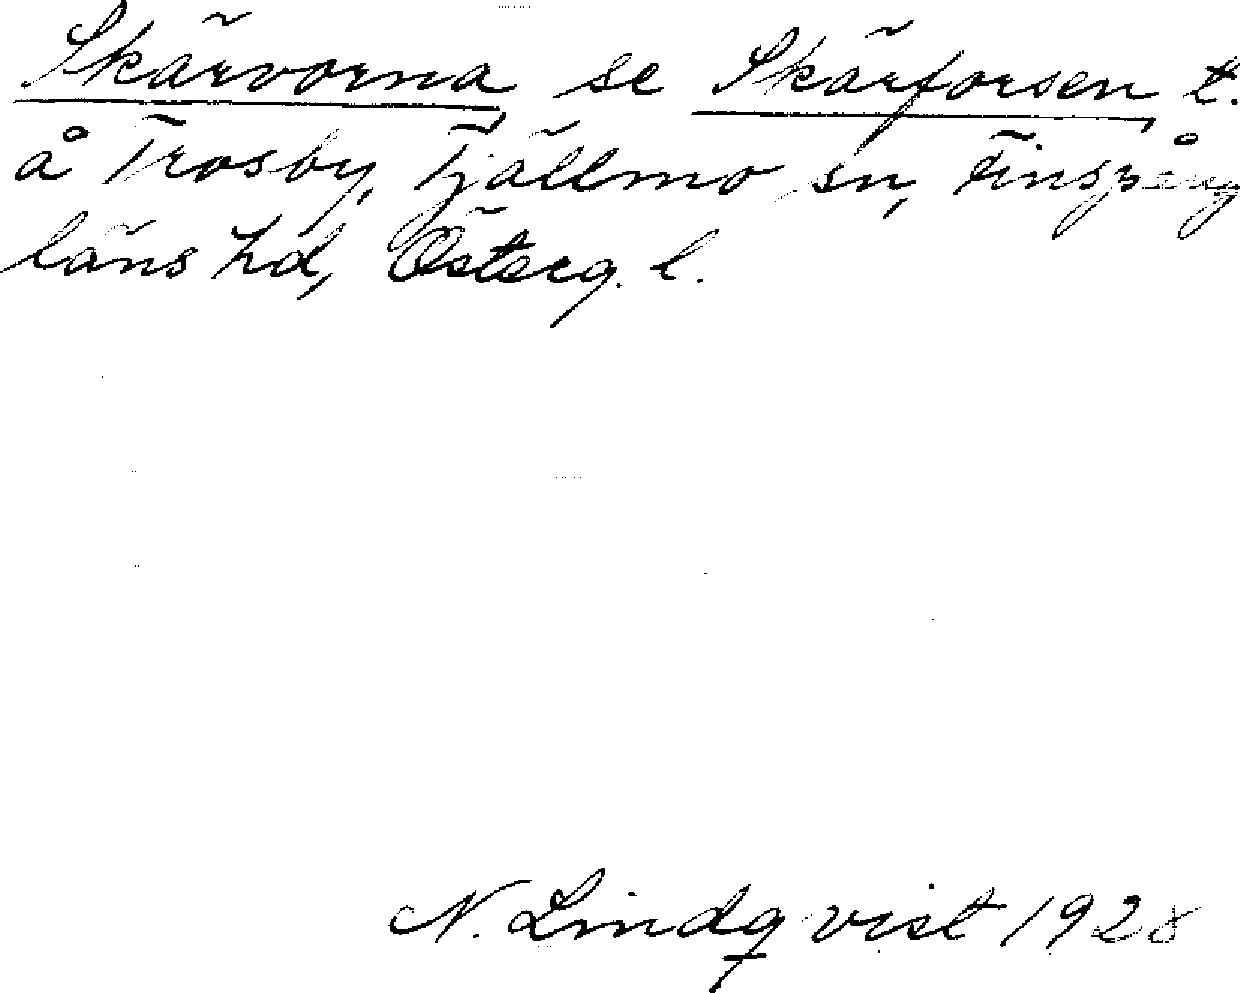 Skärvorna se Skärforsen t.
å Trosby, Tjällmo sn, Finspång
läns hd, Österg. l.
N. Lindqvist 1928